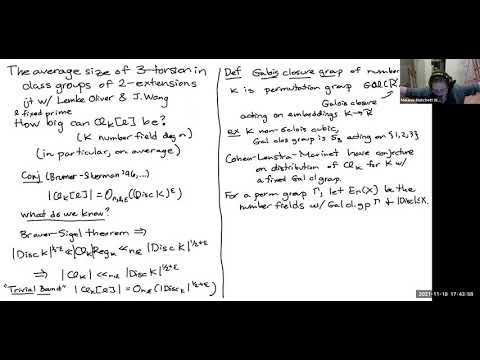 The average size of 3-torsion in
class groups of 2-extensions
jt w/ Lemke Oliver & J. Wang
ℓ fixed prime
How big can Cl_K[ℓ] be?
(K number field deg n)
(in particular, on average)
Conj (Brumer-Silverman '96, ...)
|Cl_K[ℓ]| = O_{n,ℓ,ε}(|Disc K|^ε)
What do we know?
Brauer-Siegel theorem
|Disc K|^{1/2-ε} ≪ |Cl_K| Reg_K ≪_{n,ε} |Disc K|^{1/2+ε}
⇒ |Cl_K| ≪_{n,ε} |Disc K|^{1/2+ε}
"Trivial Bound" |Cl_K[ℓ]| = O_{n,ε}(|Disc K|^{1/2+ε})
Def Galois closure group of number
K is permutation group Gal(K̃
Galois closure
acting on embeddings K → Q̄
ex K non-Galois cubic,
Gal clos group is S_3 acting on {1,2,3}
Cohen-Lenstra-Martinet have conjecture
on distribution of Cl_K for K w/
a fixed Gal cl group.
For a perm group Γ, let E_Γ(X) be the
number fields w/ Gal cl. gp Γ & |Disc| ≤ X.
2021-11-18 17:43:58